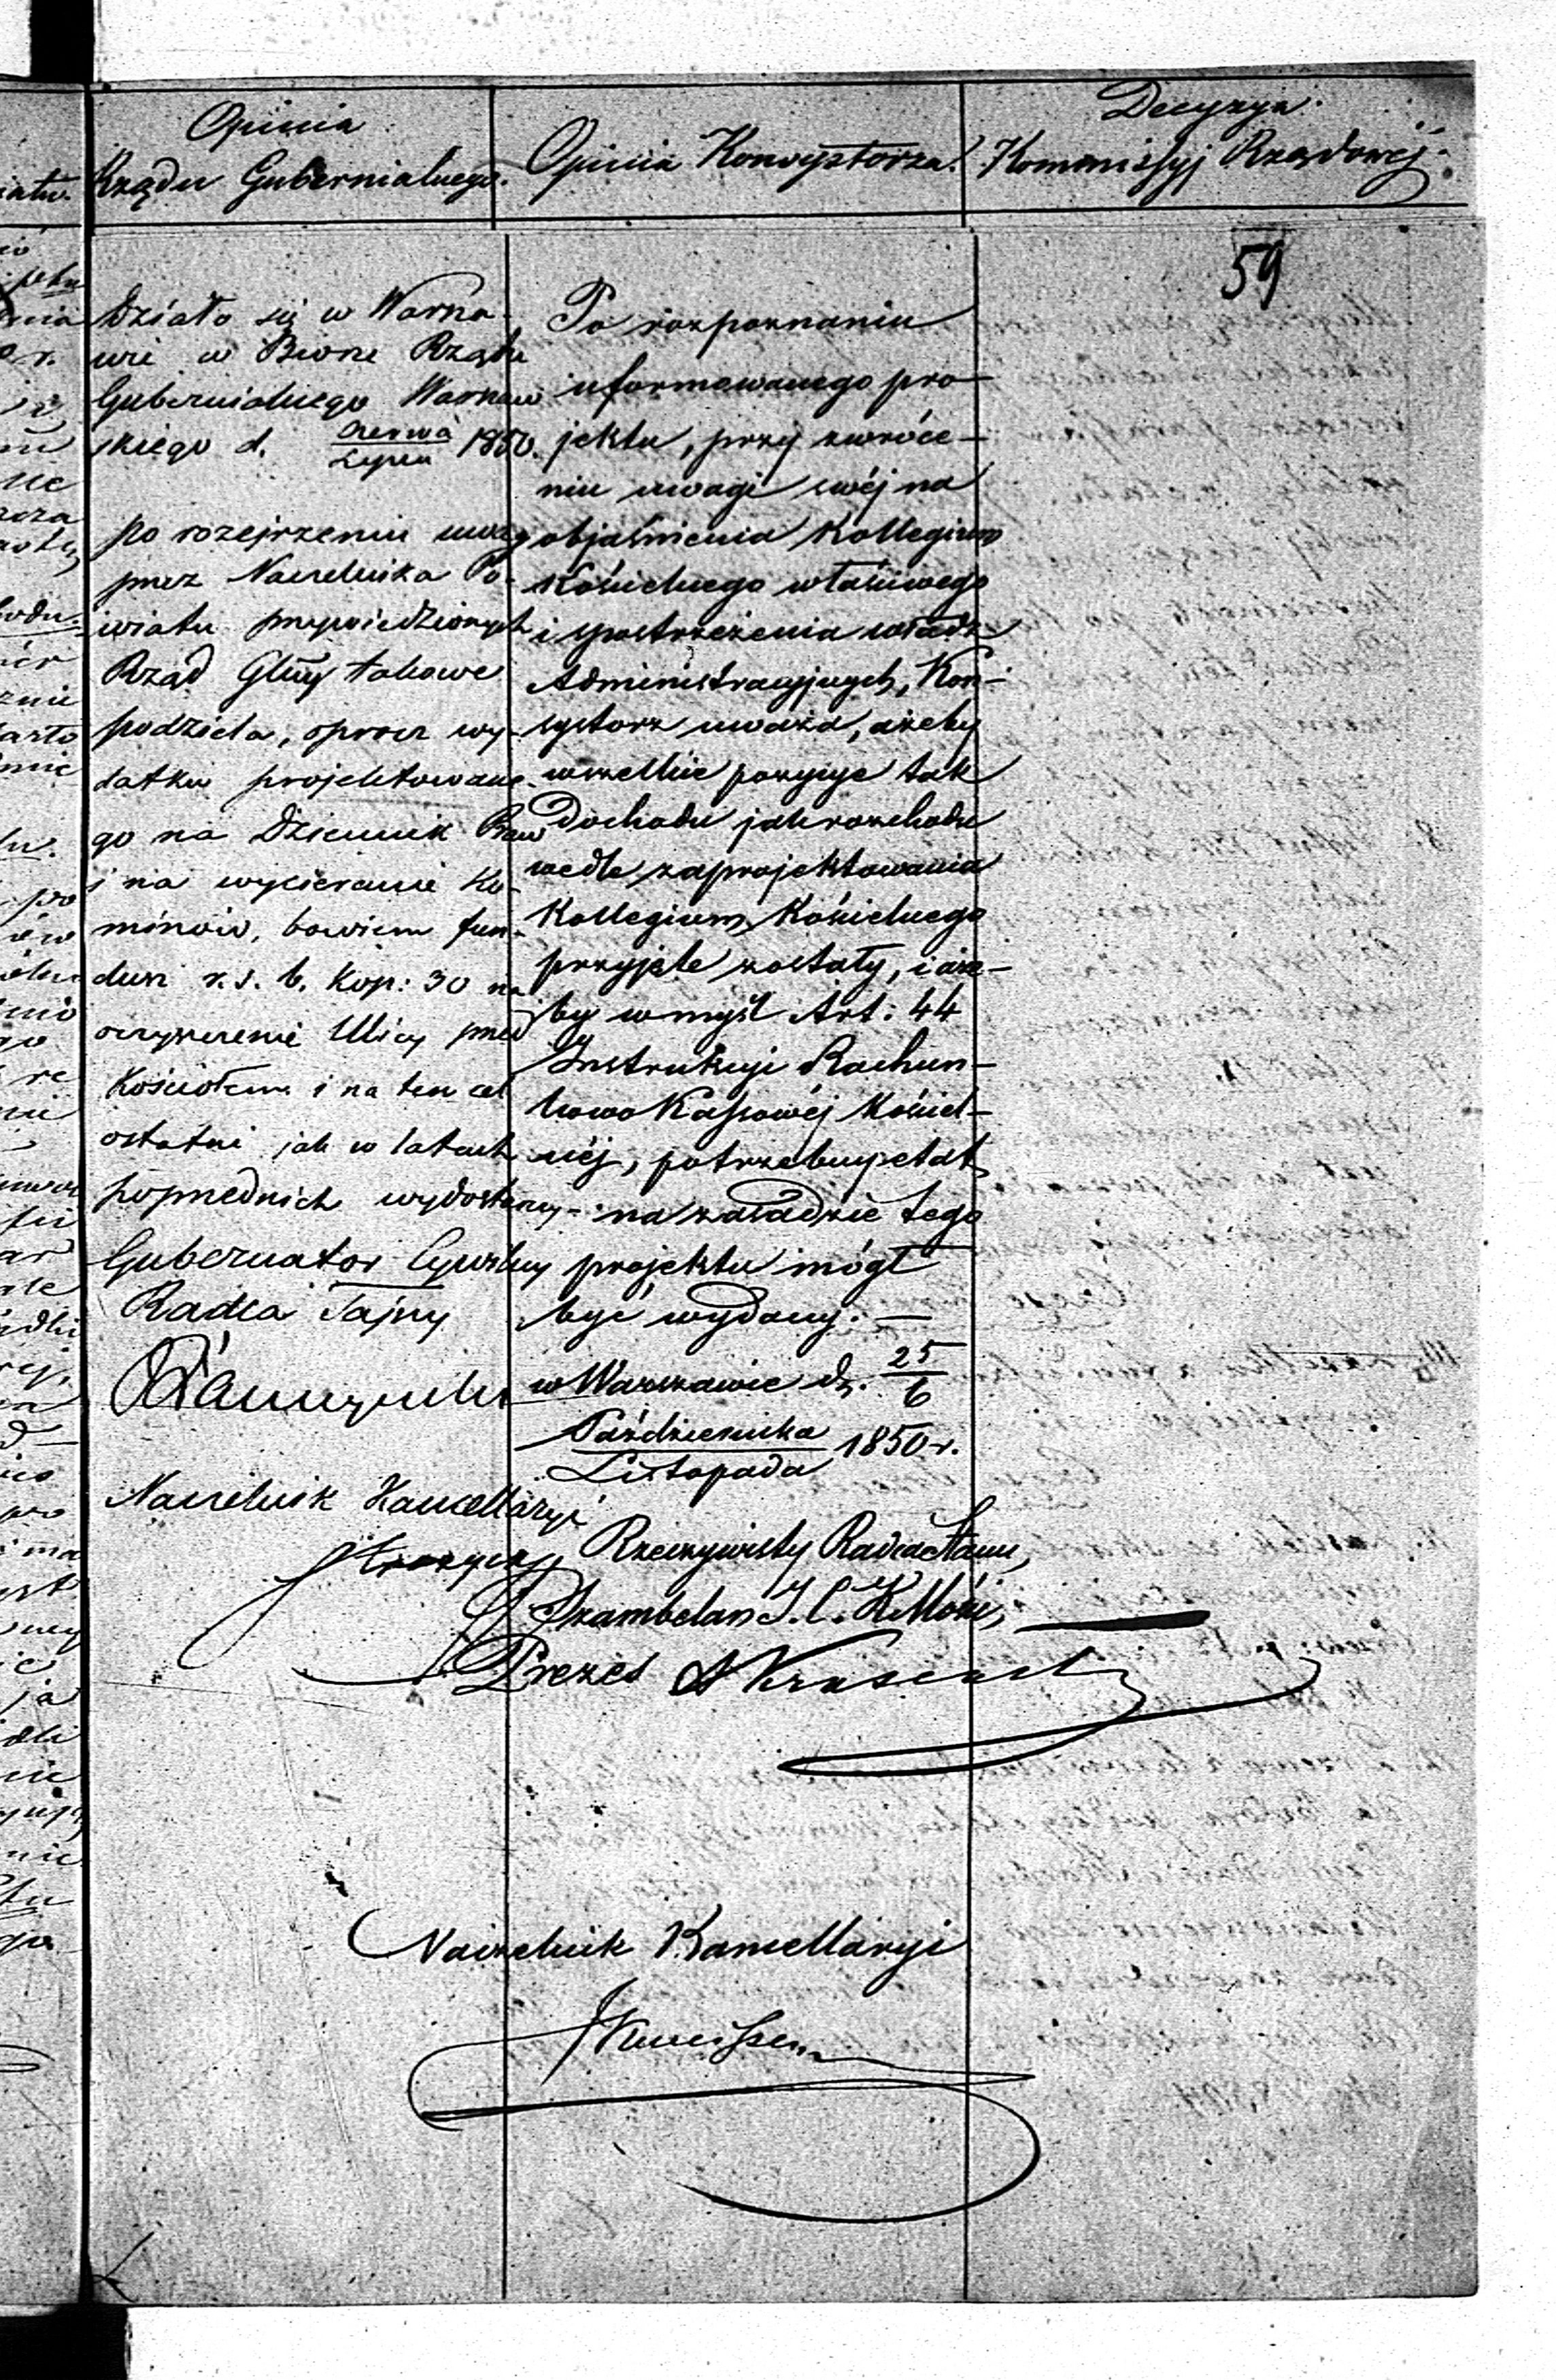 Opinia
Rządu Gubernialnego.
Opinia Konsystorza.
Decyzya
Kommissyj Rządowej.
59
Działo się w Warsza-
wie w Biorze Rządu
Gubernialnego Warszaw
skiego d. Czerwca/Lipca 1850.
po rozejrzeniu uwag
przez Naczelnika Po-
wiatu przywiedzionych
Rząd Glny takowe
podziela, oprócz wy-
datku projektowane-
go na Dziennik Praw
i na wycieranie Ko-
minów, bowiem fun-
dusz r. s. 6. kop: 30 na
oczyszczenie Ulicy przed
Kościołem i na ten cel
ostatni jak w latach
poprzednich wydostarczy-
Gubernator Cywilny
Radca Tajny
Naczelnik Kancellaryi
Po rozpoznaniu
uformowanego pro-
jektu, przy zwróce-
niu uwagi swéj na
objaśnienia Kollegium
Kościelnego właściwego
i spostrzeżenia władz
Administracyjnych, Kon-
systorz uważa, ażeby
wszelkie pozycye tak
Dochodu jak rozchodu
wedle zaprojektowania
Kollegium Kościelnego
przyjęte zostały, i aże-
by w myśl Art: 44
Instrukcyi Rachun-
kowo Kassowéj Kościel-
néj, potrzebny etat
na zasadzie tego
projektu mógł
być wydany. —
w Warszawie d. 25/6
Października/Listopada 1850 r.
Rzeczywisty Radca Stanu,
Szambelan J. C. K. Mości,
Prezes
Naczelnik Kancellaryi